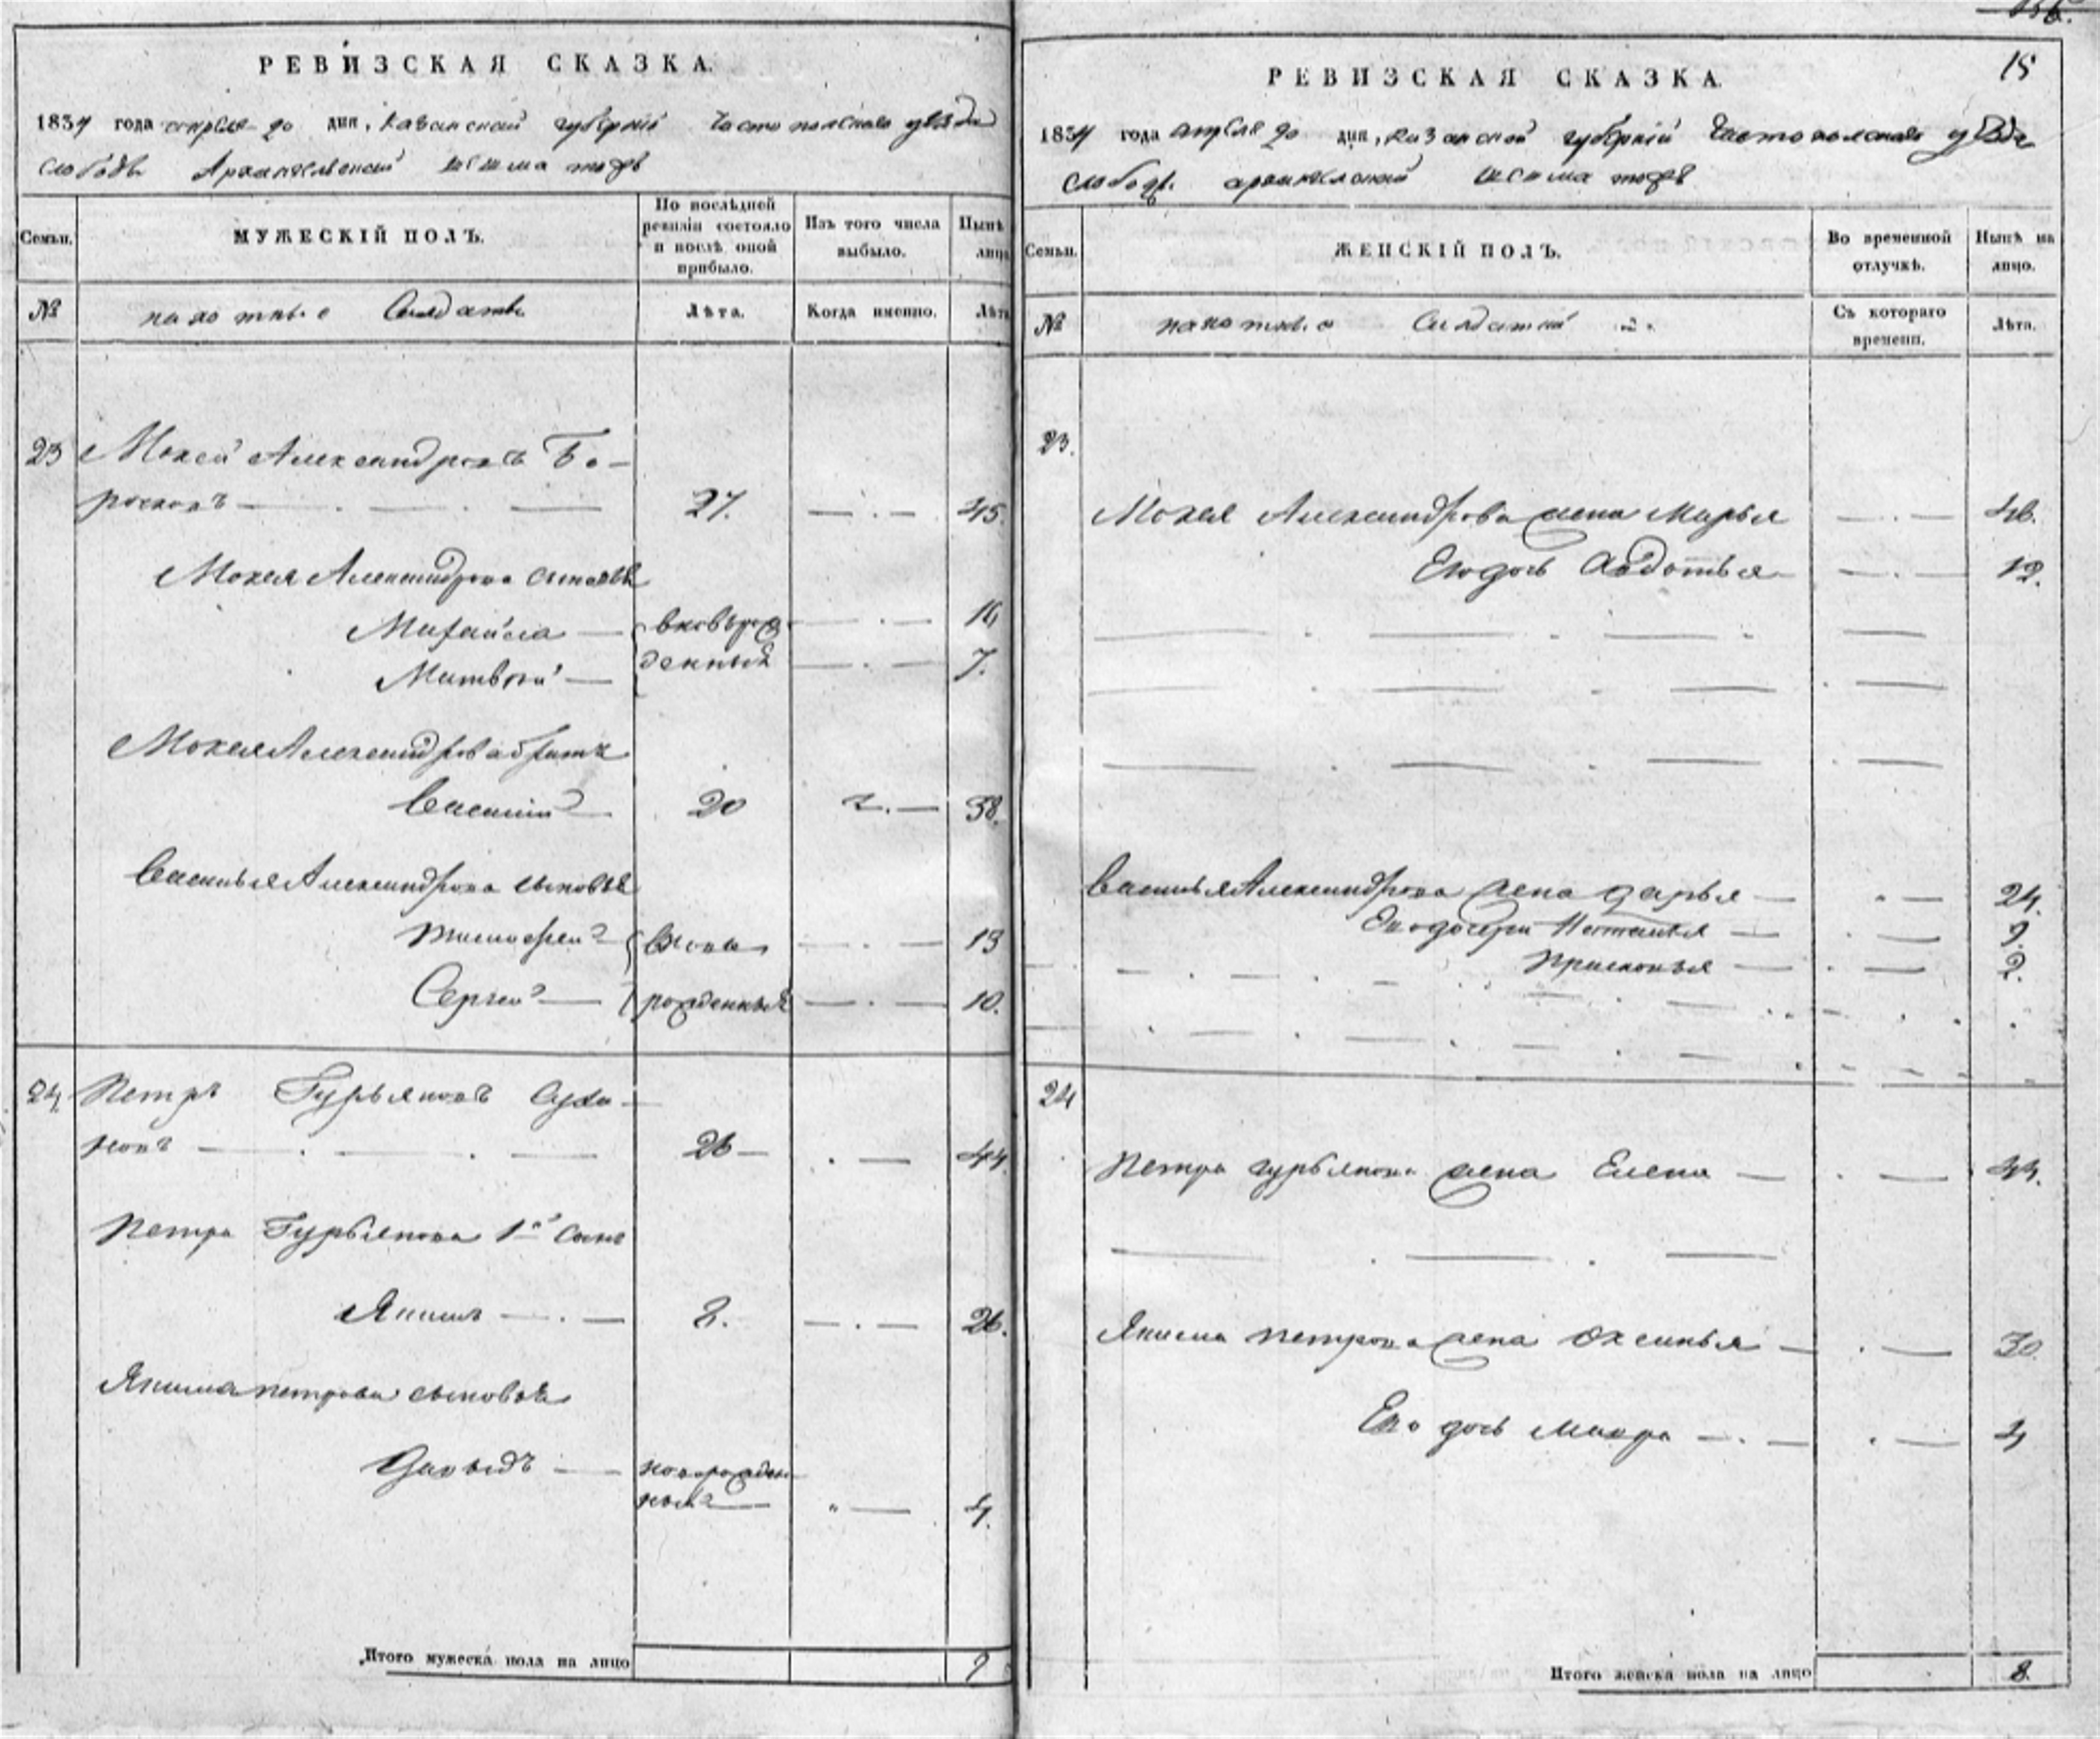 РЕВИЗСКАЯ СКАЗКА.
1834 года апреля 20 дня, Казанской губерніи Чистопольскаго уезда
слободы Архангельской
Семьи.
МУЖЕСКІЙ ПОЛЪ.
По послѣдней ревизіи состояло и послѣ оной прибыло.
Изъ того числа выбыло.
Нынѣ на лицо
№
пахотные Солдаты
Лѣта.
Когда именно.
Лѣта
23 Мокей Александровъ Бо-
росковъ 27. 45.
Мокея Александрова сыновья
Михайла вновьрож- 16
Матвей денныя 7.
Мокея Александрова братъ
Василий 20 38.
Василья Александрова сыновья
Тимофей вновь 13
Сергей рожденныя 10.
24 Петръ Гурьяновъ Суха-
новъ 26 44.
Петра Гурьянова 1й сынъ
Якимъ 8. 26.
Якима петрова сыновья
Давыдъ новорожден-
ный 4.
Итого мужеска пола на лицо 9
15
РЕВИЗСКАЯ СКАЗКА.
1834 года апреля 20 дня, казанской губерніи Чистопольскаго уезда
слободы архангельской
Семьи.
ЖЕНСКІЙ ПОЛЪ.
Во временной отлучкѣ.
Нынѣ на лицо.
№
пахотные Солдатки
Съ котораго времени.
Лѣта.
23.
Мокея Александрова жена Марья 46.
Его дочь Авдотья 12.
Василья Александрова жена дарья 24.
Его дочери Наталья 9.
Прасковья 2.
24
Петра гурьянова жена Елена 44.
Якима петрова жена Оксинья 30.
Его дочь Мавра 4
Итого женска пола на лицо 8.